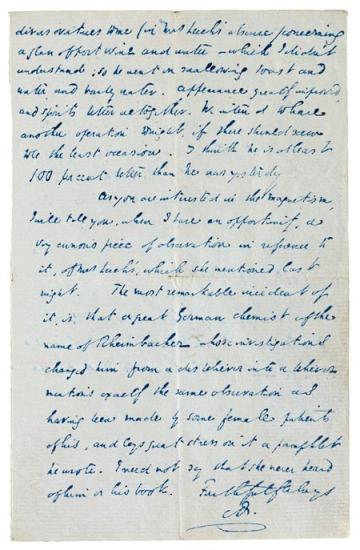 divers vatures to me (in Mrs Leech's absence) concerning
a glass of port wine and water – which I didn't
understand; so he went on swallowing toast and
water and barley water. Appearance greatly improved
and spirits better altogether. We intend to have
another operation tonight, if there should seem
to be the least occasion. I think he is at least
100 per cent better, than he was yesterday
As you are interested in the magnetism
I will tell you, when I have an opportunity, a
very curious piece of observation in reference to
it, of Mrs Leech's, which she mentioned last
night. The most remarkable incident of
it, is, that a great German chemist of the
name of Rheinbacher whose investigations
changed him from a disbeliever into a believer
mentions exactly the same observation as
having been made by some female patients
of his, and lays great stress on it in a pamphlet
he wrote. I need not say that she never heard
of him or his book.
Faithfully always
CD.